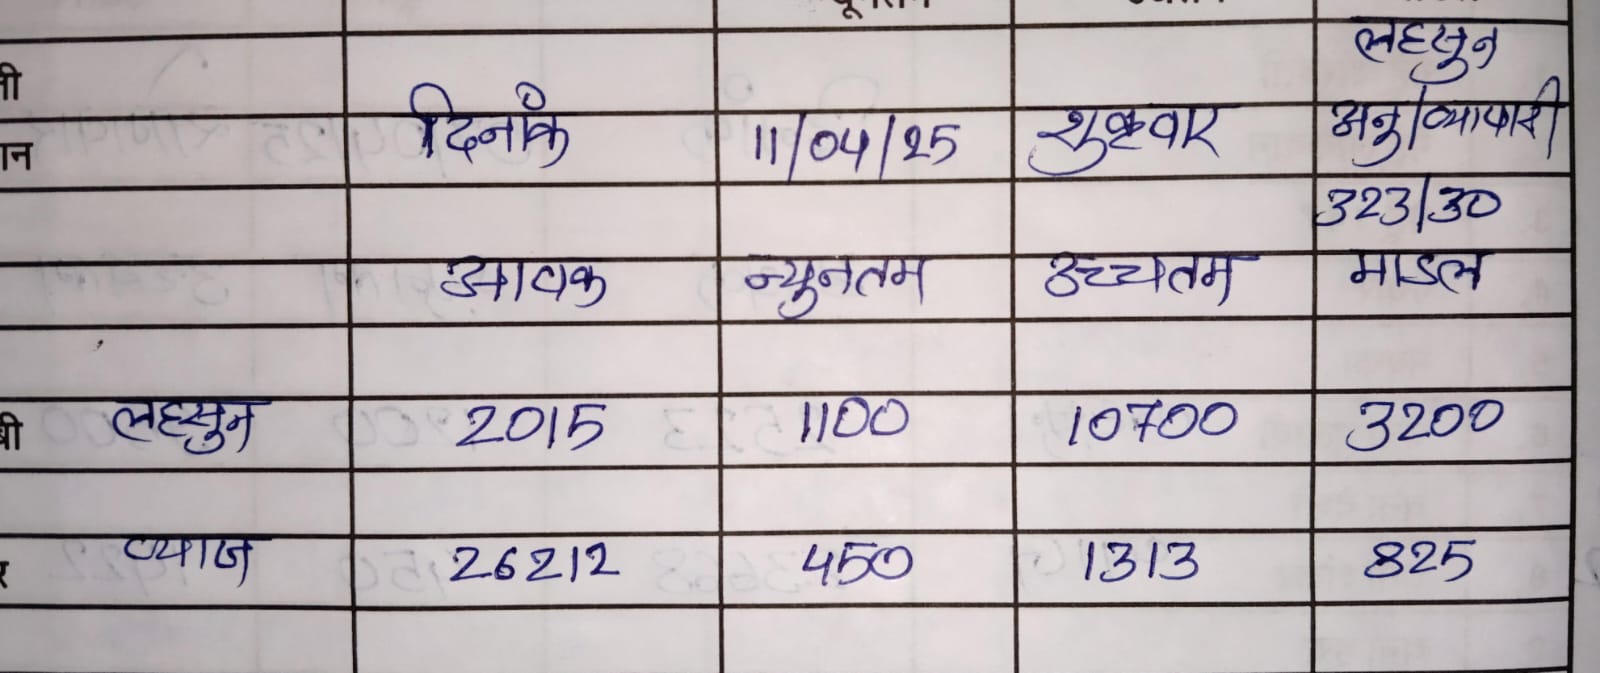 लहसुन
दिनांक 11/04/25 शुक्रवार अनु/व्यापारी
323/30
आवक न्युनतम उच्चतम माडल
लहसुन 2015 1100 10700 3200
प्याज 26212 450 1313 825